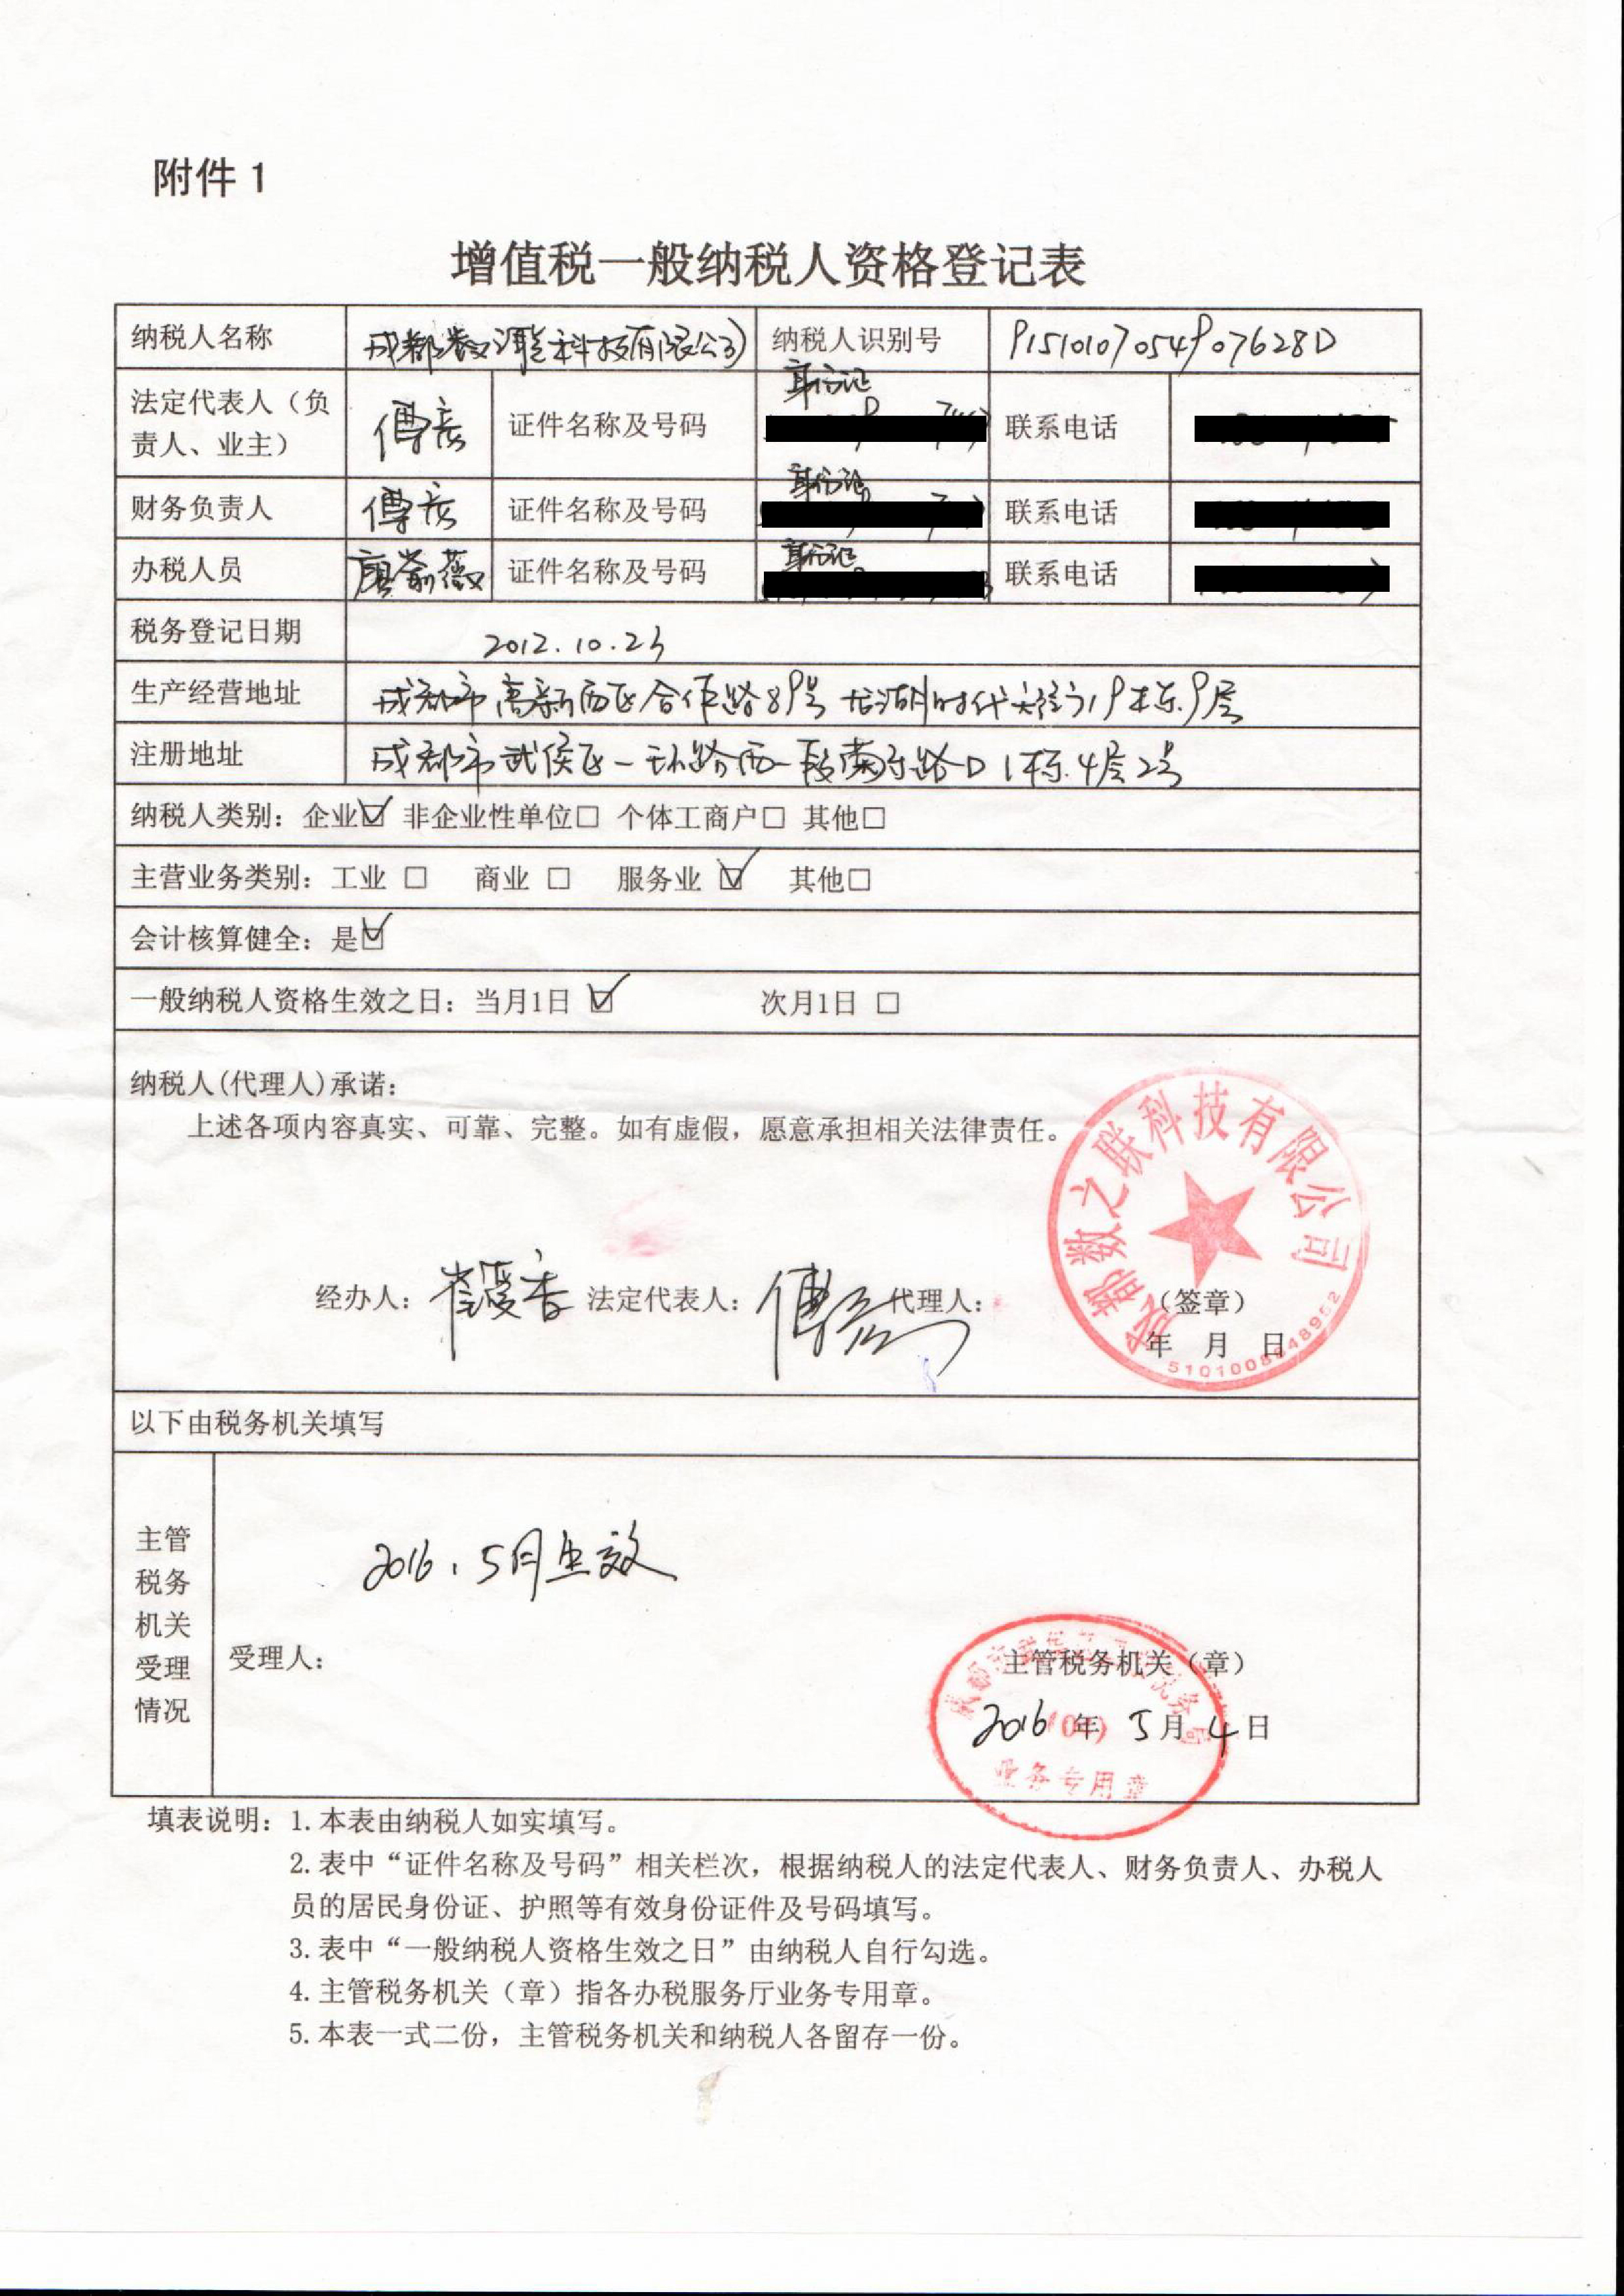 附件 1
增值税一般纳税人资格登记表
纳税人名称 成都数之联科技有限公司 纳税人识别号 91510107054907628D
法定代表人（负责人、业主） 傅彦 证件名称及号码 身份证 联系电话
财务负责人 傅彦 证件名称及号码 身份证 联系电话
办税人员 证件名称及号码 身份证 联系电话
税务登记日期 2012.10.23
生产经营地址 成都市高新西区合作路89号龙湖时代天街19栋9层
注册地址 成都市武侯区一环路西一段南 路 1栋4层2号
纳税人类别：企业☑ 非企业性单位□ 个体工商户□ 其他□
主营业务类别：工业 □ 商业 □ 服务业 ☑ 其他□
会计核算健全：是☑
一般纳税人资格生效之日：当月1日 ☑ 次月1日 □
纳税人(代理人)承诺：
上述各项内容真实、可靠、完整。如有虚假，愿意承担相关法律责任。
成都数之联科技有限公司
经办人：崔爱香 法定代表人：傅彦 代理人： （签章）
年 月 日
以下由税务机关填写
主管税务机关受理情况
2016.5月生效
受理人： 主管税务机关（章）
2016年 5月4日
业务专用章
填表说明：1.本表由纳税人如实填写。
2.表中“证件名称及号码”相关栏次，根据纳税人的法定代表人、财务负责人、办税人
员的居民身份证、护照等有效身份证件及号码填写。
3.表中“一般纳税人资格生效之日”由纳税人自行勾选。
4.主管税务机关（章）指各办税服务厅业务专用章。
5.本表一式二份，主管税务机关和纳税人各留存一份。